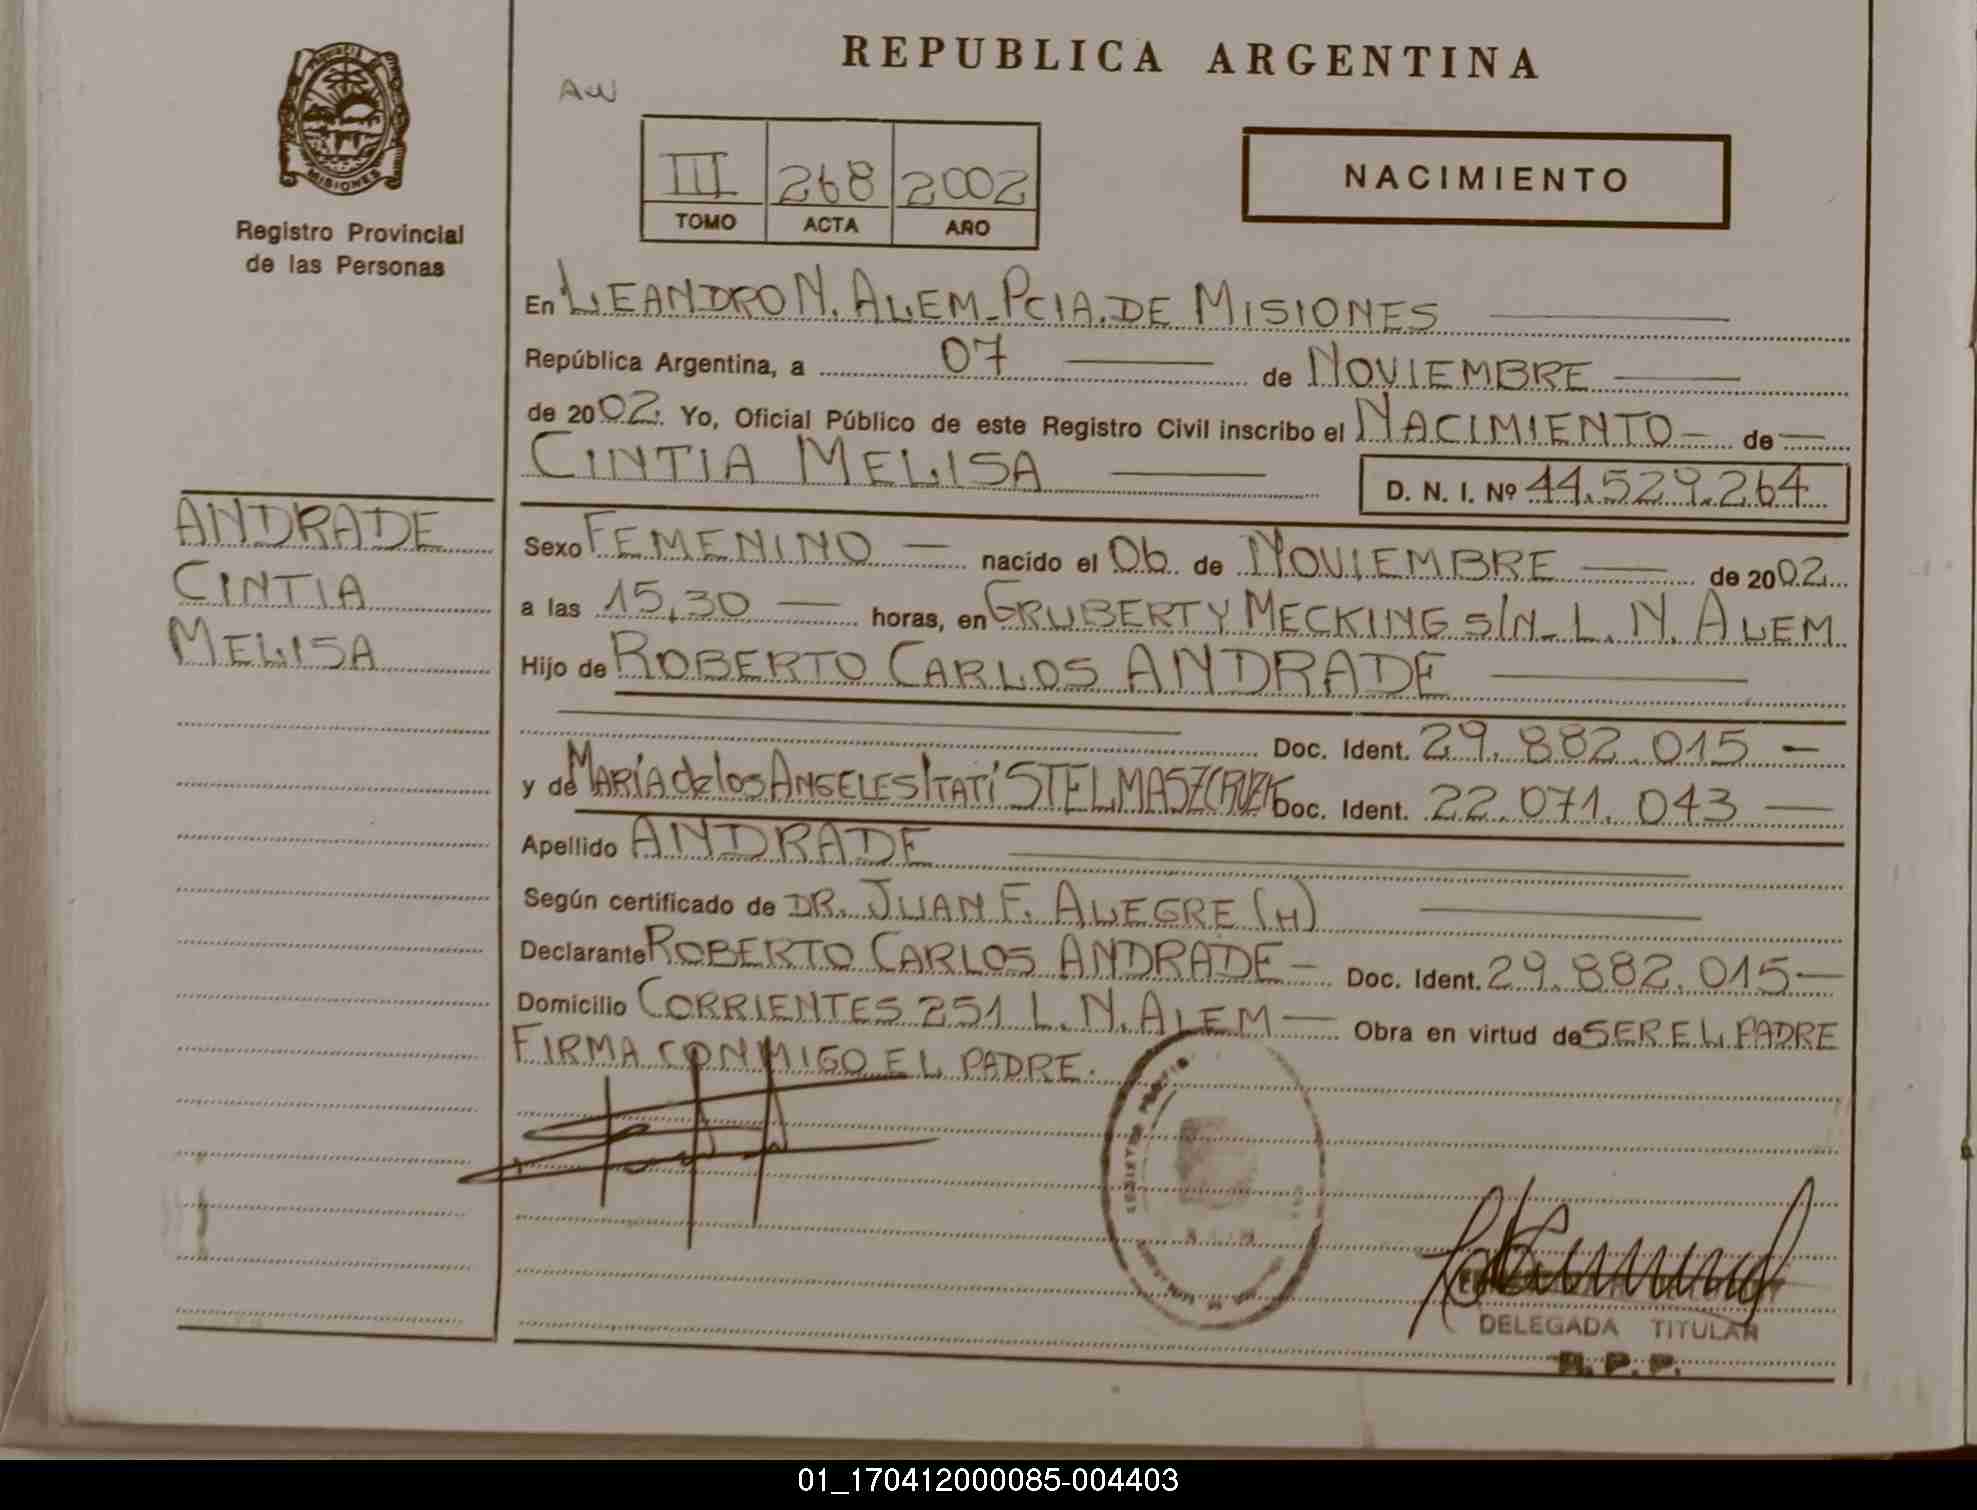 REPUBLICA ARGENTINA
AW
MISIONES
Registro Provincial
de las Personas
III 268 2002
TOMO ACTA AÑO
NACIMIENTO
En LEANDRO N. ALEM_PCIA. DE MISIONES
República Argentina, a 07 de NOVIEMBRE
de 2002. Yo, Oficial Público de este Registro Civil inscribo el NACIMIENTO de
CINTIA MELISA D. N. I. Nº 44.529.264
ANDRADE
CINTIA
MELISA
Sexo FEMENINO nacido el 06 de NOVIEMBRE de 2002
a las 15,30 horas, en GRUBERT Y MECKING S/N_ L. N. ALEM
Hijo de ROBERTO CARLOS ANDRADE
Doc. Ident. 29.882.015
y de MARÍA de los ANGELES ITATÍ Doc. Ident. 22.071.043
Apellido ANDRADE
Según certificado de DR. JUAN F. ALEGRE (H)
Declarante ROBERTO CARLOS ANDRADE Doc. Ident. 29.882.015
Domicilio CORRIENTES 251 L. N. ALEM Obra en virtud de SER EL PADRE
FIRMA CONMIGO EL PADRE.
DELEGADA TITULAR
R. P. P.
01_170412000085-004403